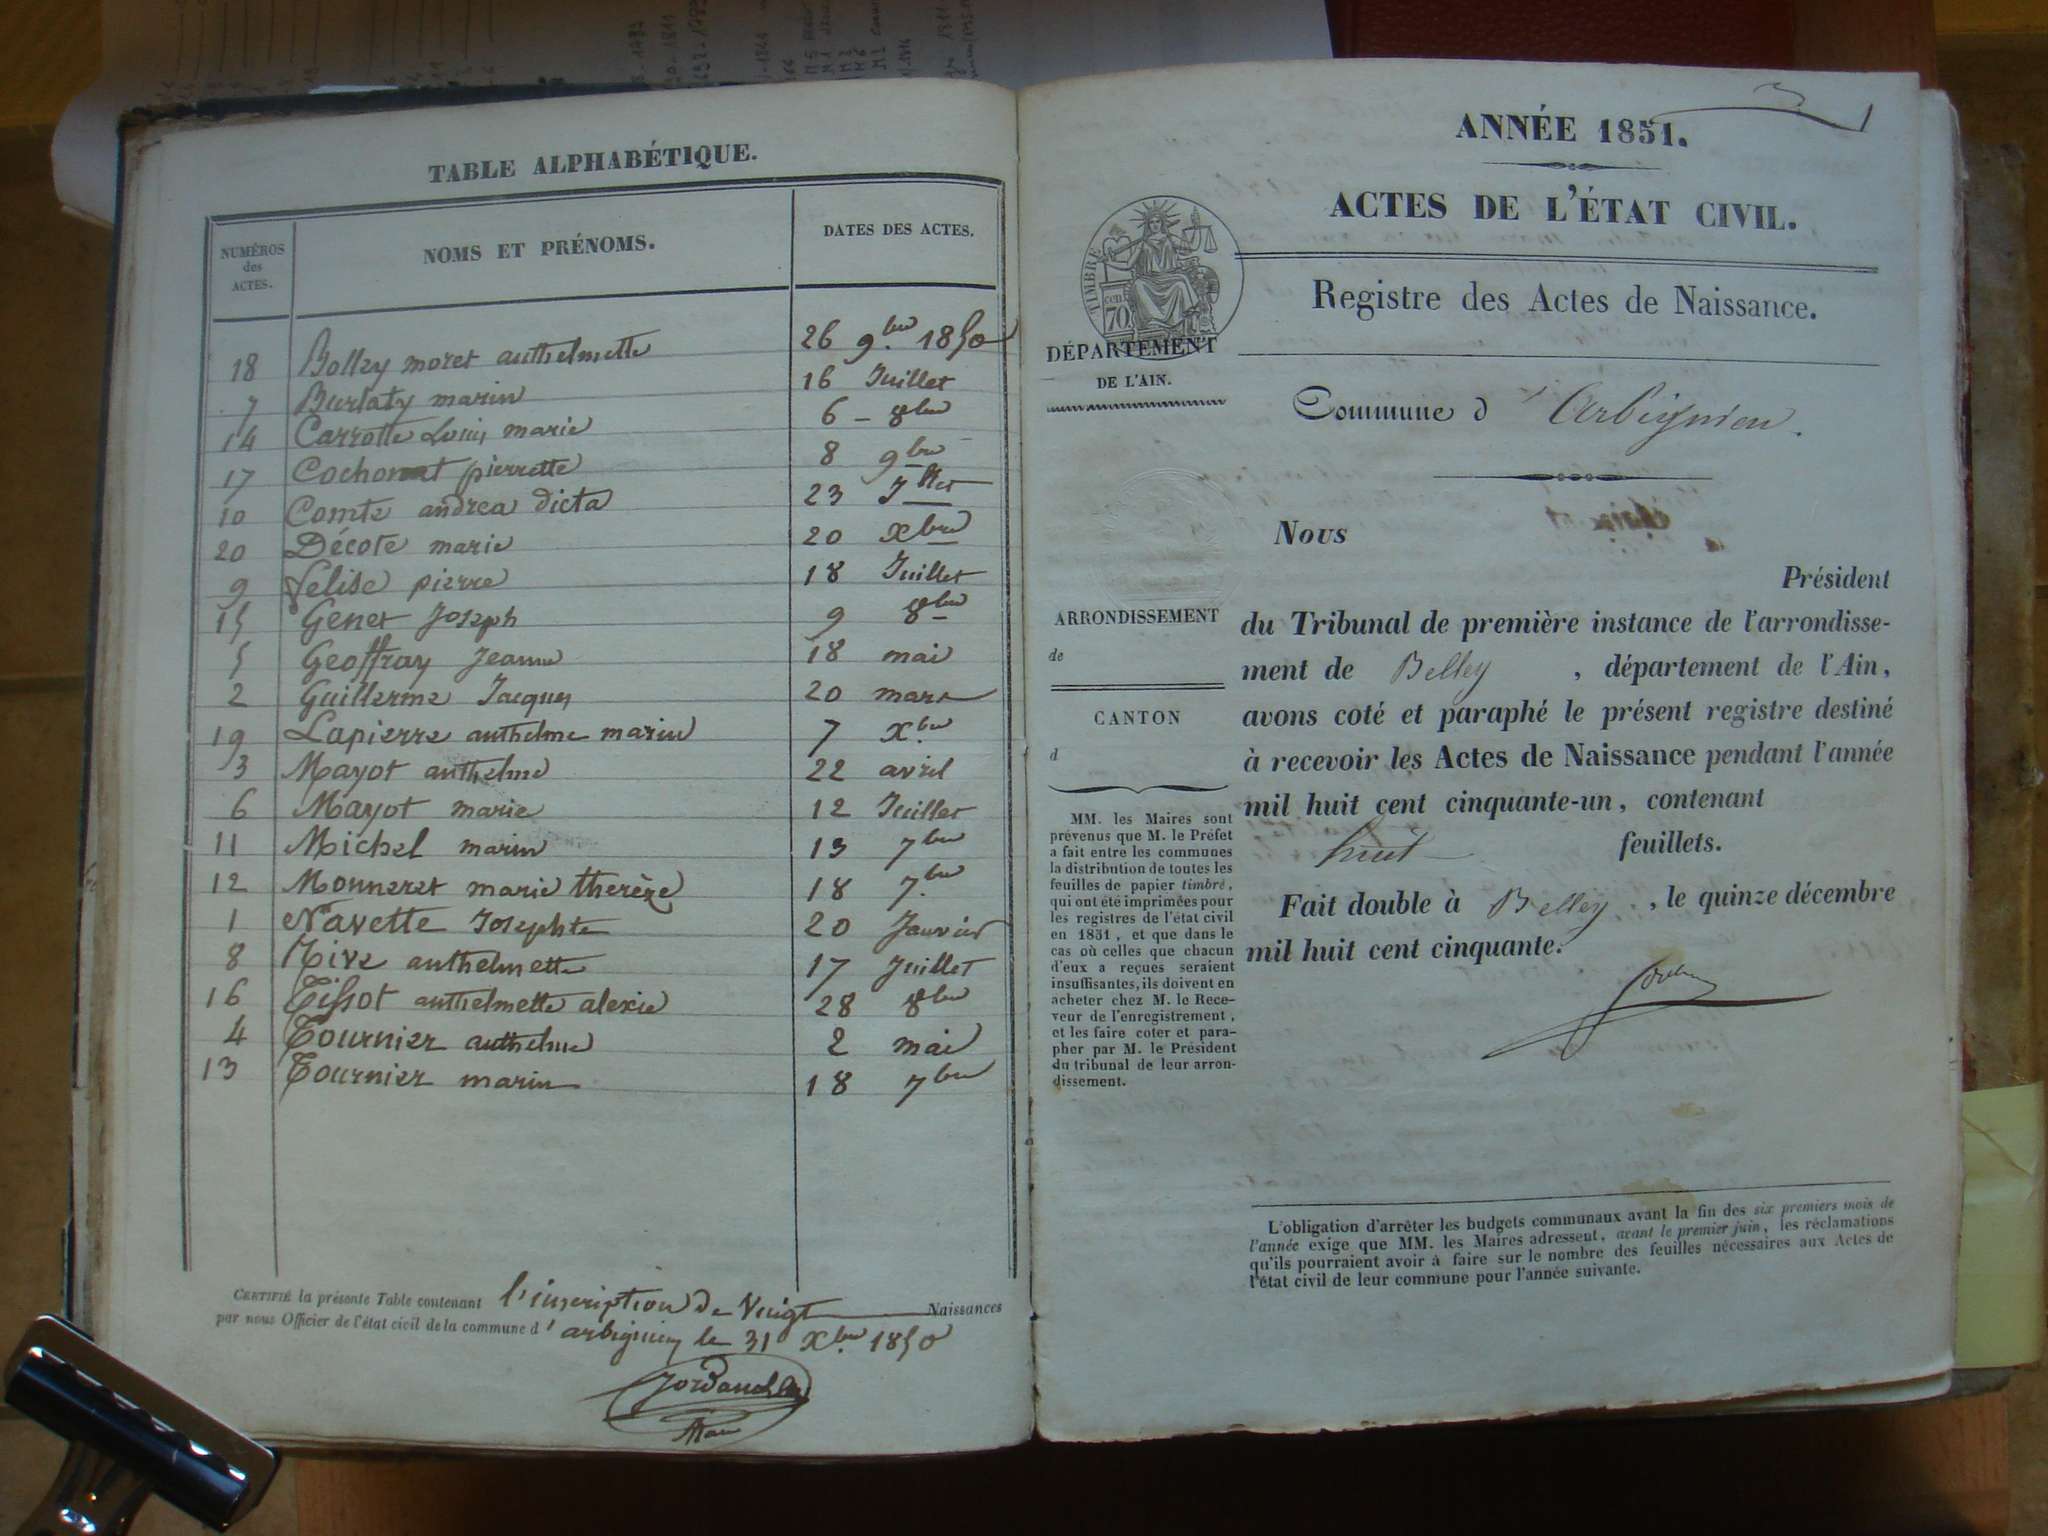 TABLE ALPHABÉTIQUE.
NUMÉROS
des
ACTES.
NOMS ET PRÉNOMS.
DATES DES ACTES.
18 Bollzy moret anthelmette 26 9.bre 1850
7 Burlaty marin 16 Juillet
14 Carrotte Louis marie 6 - 8bre
17 Cochonat pierrette 8 9bre
10 Comte andrea dicta 23 Jllet
20 Décote marie 20 xbre
9 Felise pierre 18 Juillet
15 Genet Joseph 9 8bre
5 Geoffray Jeanne 18 mai
2 Guillerme Jacques 20 mars
19 Lapierre anthelme marin 7 Xbre
3 Mayot anthelme 22 avril
6 Mayot marie 12 Juillet
11 Michel marin 13 7bre
12 Monneret marie therèze 18 7.bre
1 Navette Josephte 20 Janvier
8 Rive anthelmette 17 Juillet
16 Tissot anthelmette alexie 28 8bre
4 Tournier anthelme 2 mai
13 Tournier marin 18 7bre
CERTIFIÉ la présente Table contenant l'inscription de Vingt Naissances
par nous Officier de l'état civil de la commune d'arbignieu le 31 Xbre 1850
ANNÉE 1851.
1
ACTES DE L'ÉTAT CIVIL.
TIMBRE
cen
70
Registre des Actes de Naissance.
DÉPARTEMENT
DE L'AIN.
Commune d'Arbignieu.
Nous
Président
du Tribunal de première instance de l'arrondisse-
ment de Belley, département de l'Ain,
avons coté et paraphé le présent registre destiné
à recevoir les Actes de Naissance pendant l'année
mil huit cent cinquante-un, contenant
huit feuillets.
Fait double à Belley, le quinze décembre
mil huit cent cinquante.
ARRONDISSEMENT
de
CANTON
d
MM. les Maires sont
prévenus que M. le Préfet
a fait entre les communes
la distribution de toutes les
feuilles de papier timbré,
qui ont été imprimées pour
les registres de l'état civil
en 1851, et que dans le
cas où celles que chacun
d'eux a reçues seraient
insuffisantes, ils doivent en
acheter chez M. le Rece-
veur de l'enregistrement,
et les faire coter et para-
pher par M. le Président
du tribunal de leur arron-
dissement.
L'obligation d'arrêter les budgets communaux avant la fin des six premiers mois de
l'année exige que MM. les Maires adressent, avant le premier juin, les réclamations
qu'ils pourraient avoir à faire sur le nombre des feuilles nécessaires aux Actes de
l'état civil de leur commune pour l'année suivante.